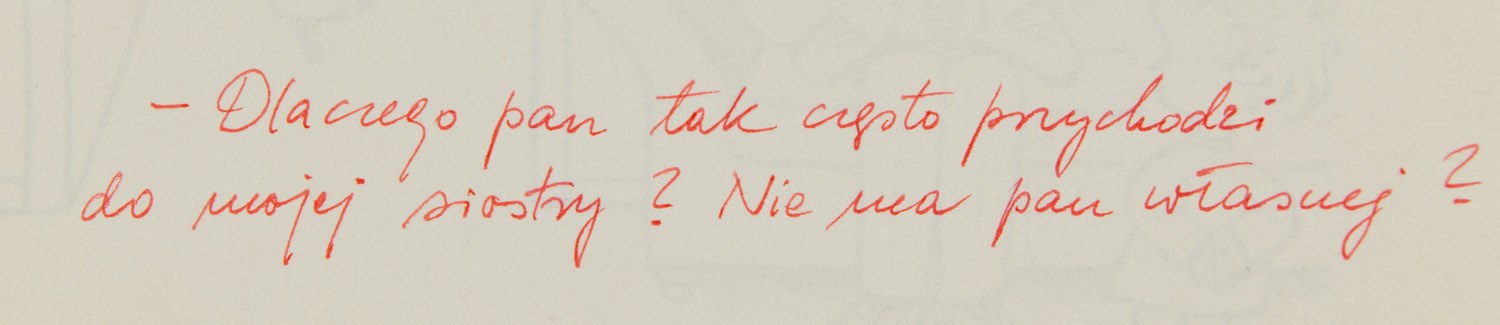 - Dlaczego pan tak często przychodzi
do mojej siostry? Nie ma pan własnej?